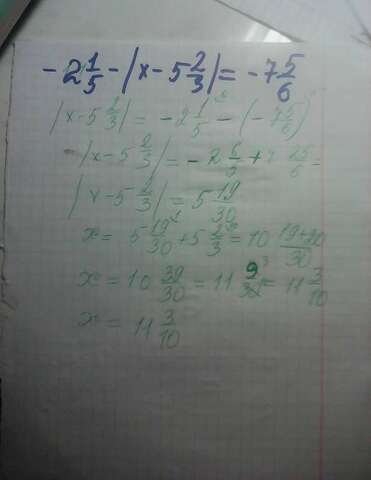 -2 1/5 - |x - 5 2/3| = -7 5/6
|x - 5 2/3| = -2 1/5 - (-7 5/6)
|x - 5 2/3| = -2 6/ + 7 25/ =
|x - 5 2/3| = 5 19/30
x = 5 19/30 + 5 2/3 = 10 19+20/30
x = 10 39/30 = 11 9/30 = 11 3/10
x = 11 3/10